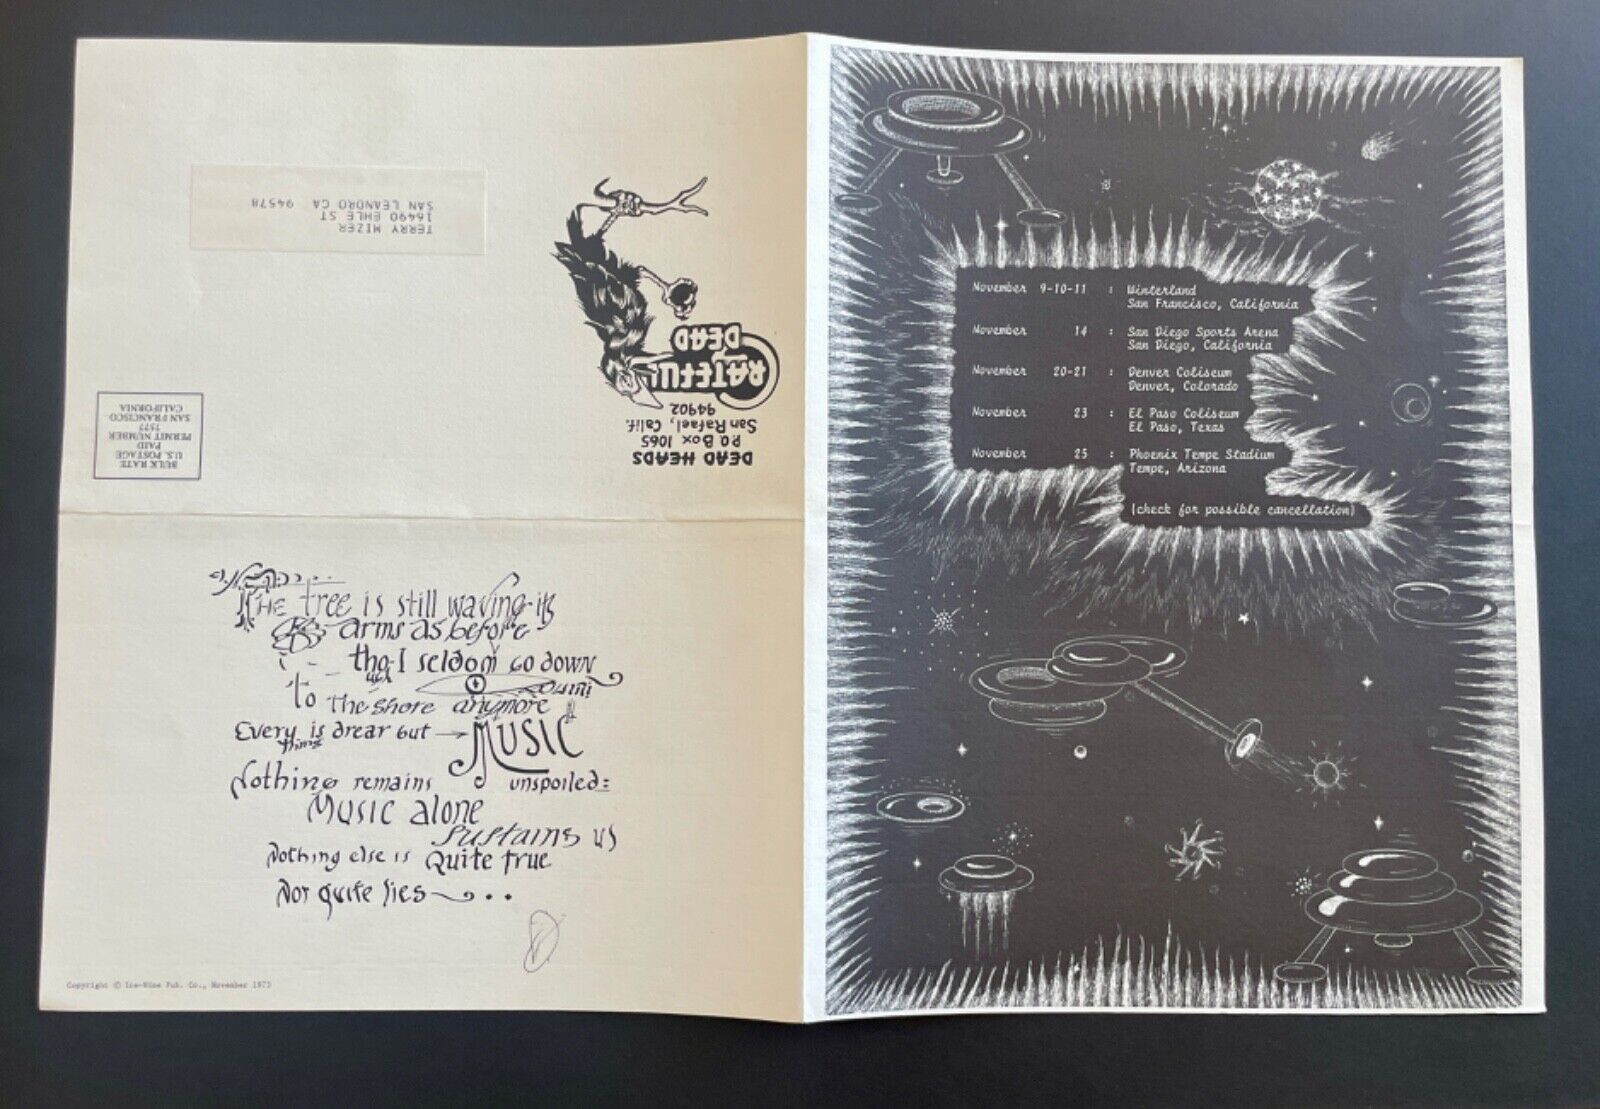 TERRY MIZER
16490 EHLE ST
SAN LEANDRO CA 94578
GRATEFUL
DEAD
DEAD HEADS
P.O. Box 1065
San Rafael, Calif.
94902
BULK RATE
U.S. POSTAGE
PAID
PERMIT NUMBER
7577
SAN FRANCISCO
CALIFORNIA
THE tree is still waving its
arms as before
tho I seldom go down
to the shore anymore
Every thing is drear but → MUSIC
Nothing remains unspoiled:
MUSIC alone
sustains us
Nothing else is Quite true
Nor quite lies
Copyright © Ice-Nine Pub. Co., November 1973
November 9-10-11 : Winterland
San Francisco, California
November 14 : San Diego Sports Arena
San Diego, California
November 20-21 : Denver Coliseum
Denver, Colorado
November 23 : El Paso Coliseum
El Paso, Texas
November 25 : Phoenix Tempe Stadium
Tempe, Arizona
(check for possible cancellation)